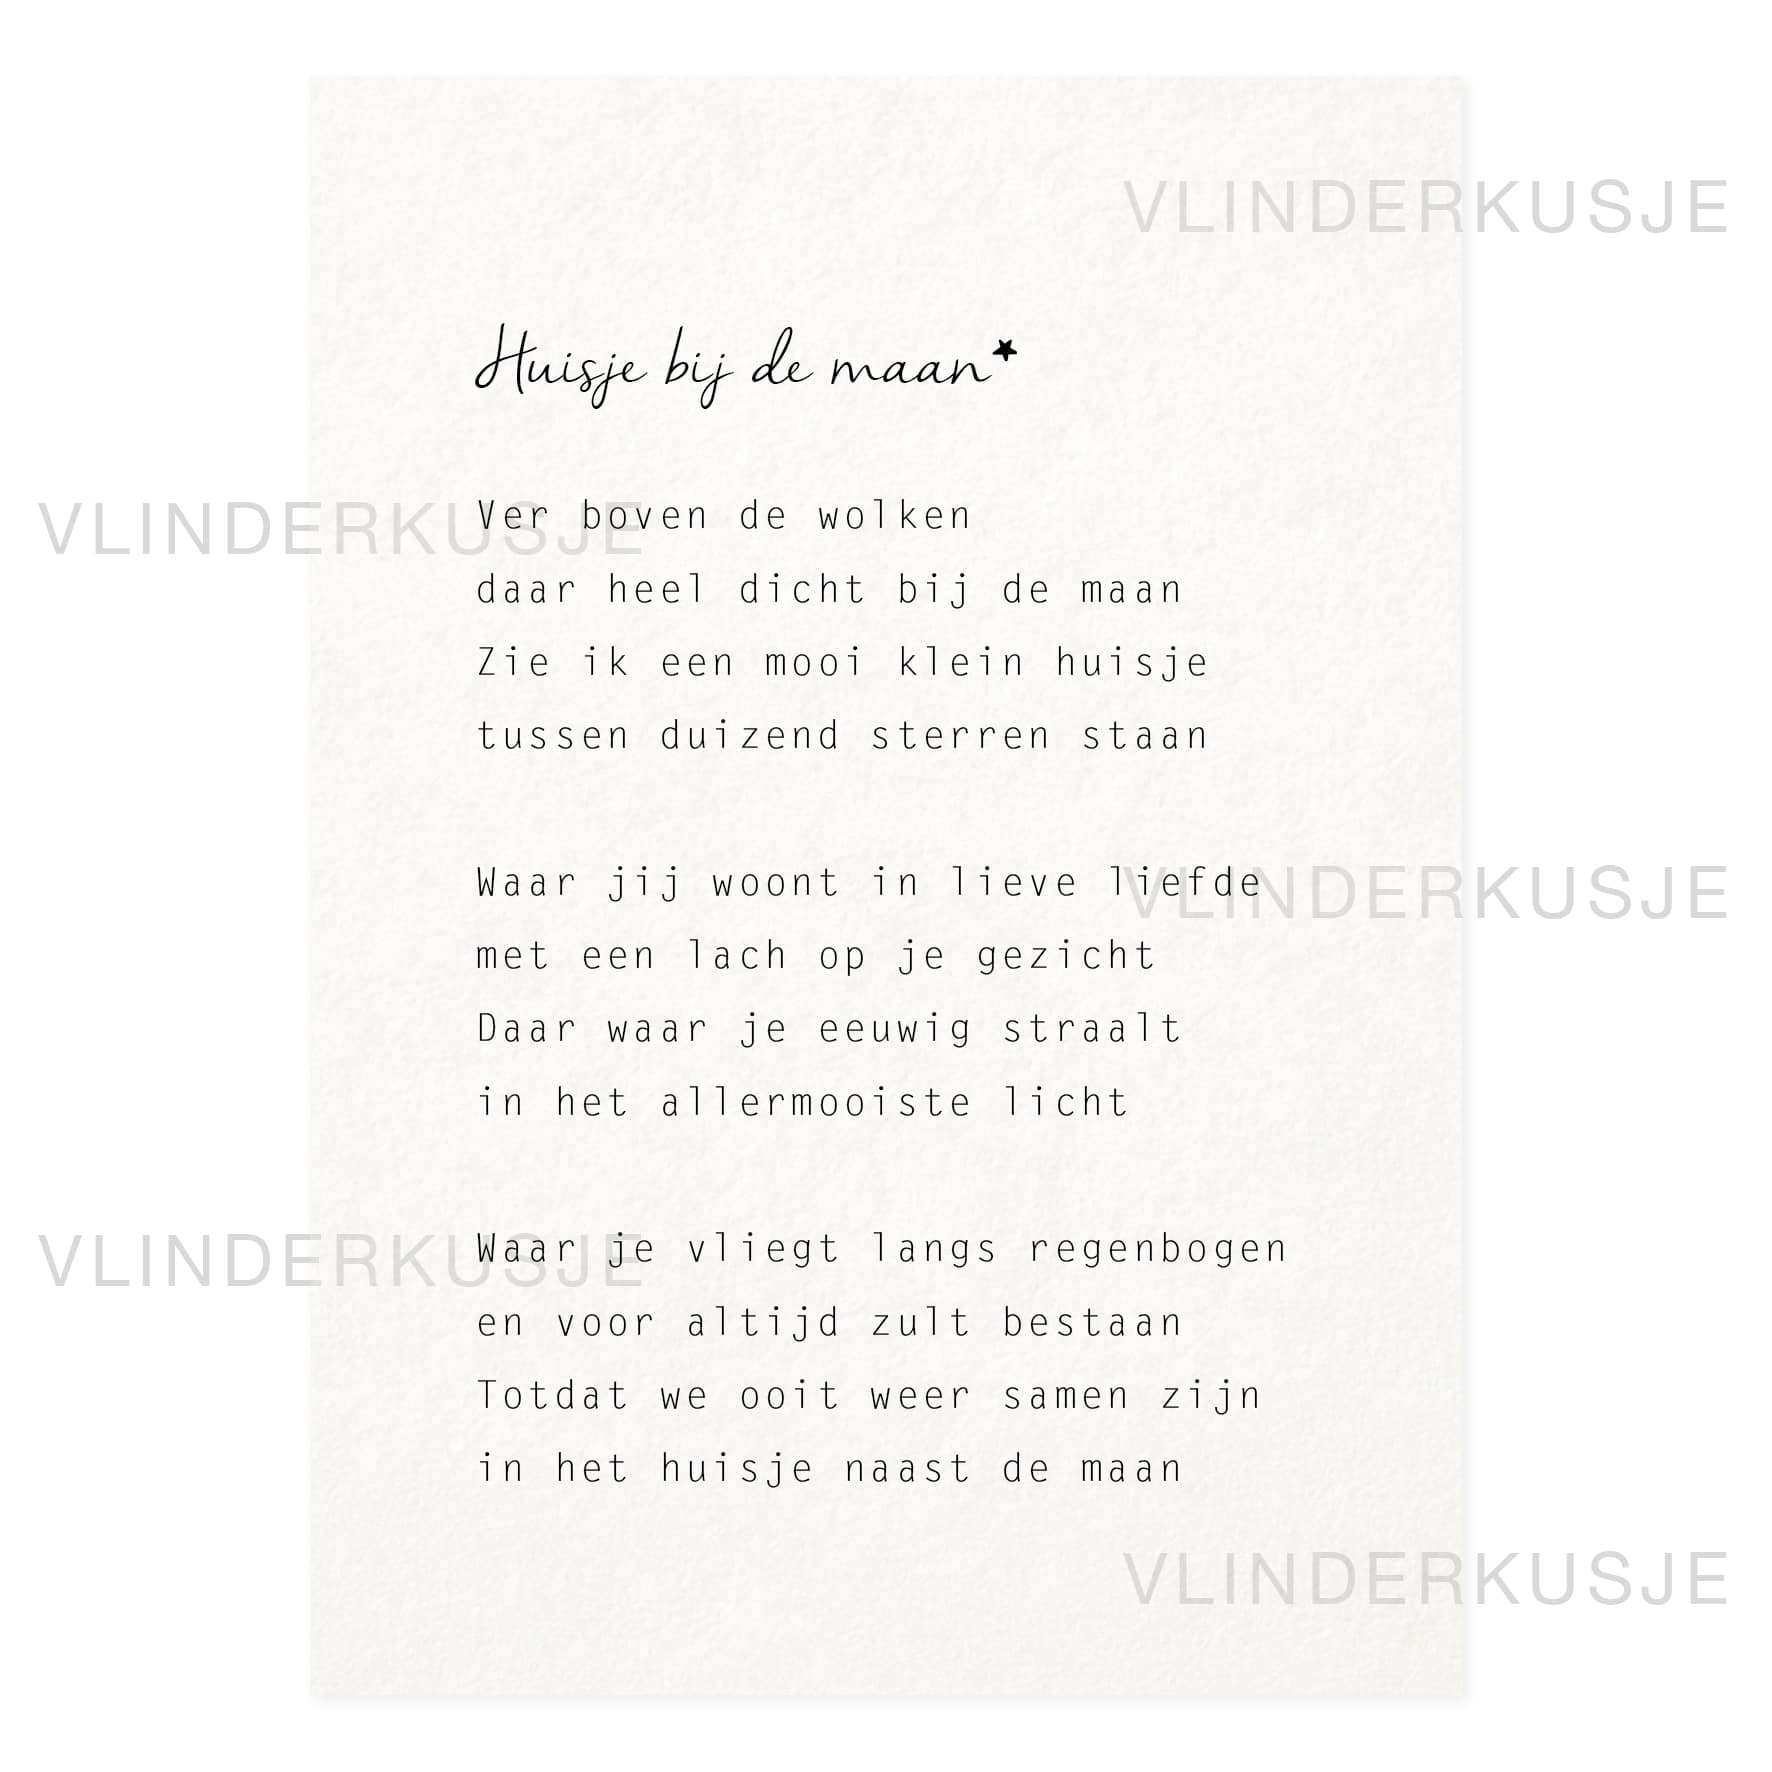 VLINDERKUSJE
Huisje bij de maan*
VLINDERKUSJE
Ver boven de wolken
daar heel dicht bij de maan
Zie ik een mooi klein huisje
tussen duizend sterren staan
Waar jij woont in lieve liefde
VLINDERKUSJE
met een lach op je gezicht
Daar waar je eeuwig straalt
in het allermooiste licht
Waar je vliegt langs regenbogen
VLINDERKUSJE
en voor altijd zult bestaan
Totdat we ooit weer samen zijn
in het huisje naast de maan
VLINDERKUSJE